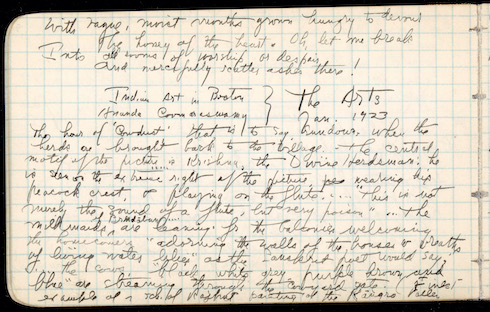 With vague, moist mouths grown hungry to devour
The honey of the heart. Oh, let me break
Into rooms of worship or despair
And mercifully scatter ashes there!
Indian Art in Boston } The Arts
Ananda Coomaraswamy } Jan. 1923
The hour of "Cowdust" that is to say, sundown, when the
herds are brought back to the village. The central
motif of the picture is Krishna, the Divine Herdsman: he
is seen on the extreme right of the picture wearing his
peacock crest & playing on the flute.... "This is not
merely the sound of a flute, but very poison" ... The
milkmaids are leaning from the balconies welcoming
the homecomers "adorning the walls of the houses
of living water lilies" as the Sanskrit poet would say,
the cows, black, white, grey, purple brown and
blue are streaming through the courtyard gate.
example of a school of Rajput painting of the